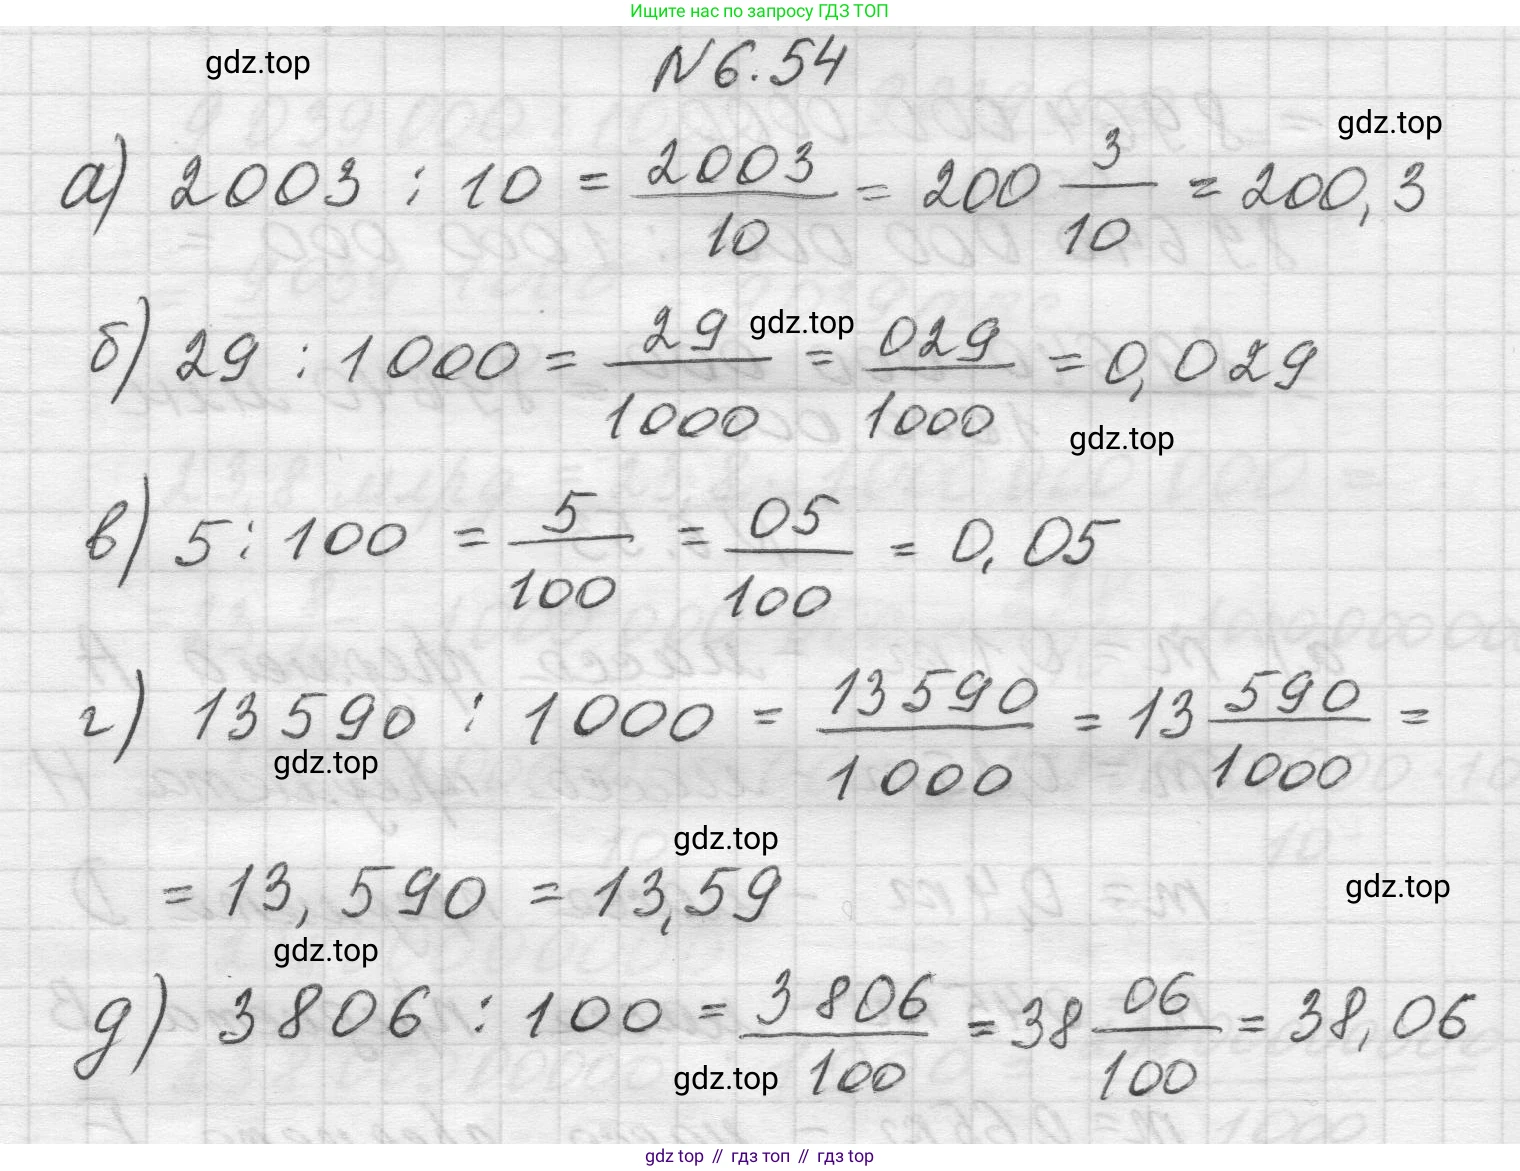 Ищите нас по запросу ГДЗ ТОП
gdz.top
N 6.54
gdz.top
а) 2003 : 10 = 2003/10 = 200 3/10 = 200,3
gdz.top
б) 29 : 1000 = 29/1000 = 029/1000 = 0,029
gdz.top
в) 5 : 100 = 5/100 = 05/100 = 0,05
г) 13590 : 1000 = 13590/1000 = 13 590/1000 =
gdz.top
gdz.top
= 13,590 = 13,59
gdz.top
gdz.top
д) 3806 : 100 = 3806/100 = 38 06/100 = 38,06
gdz.top
gdz top // гдз топ // gdz top